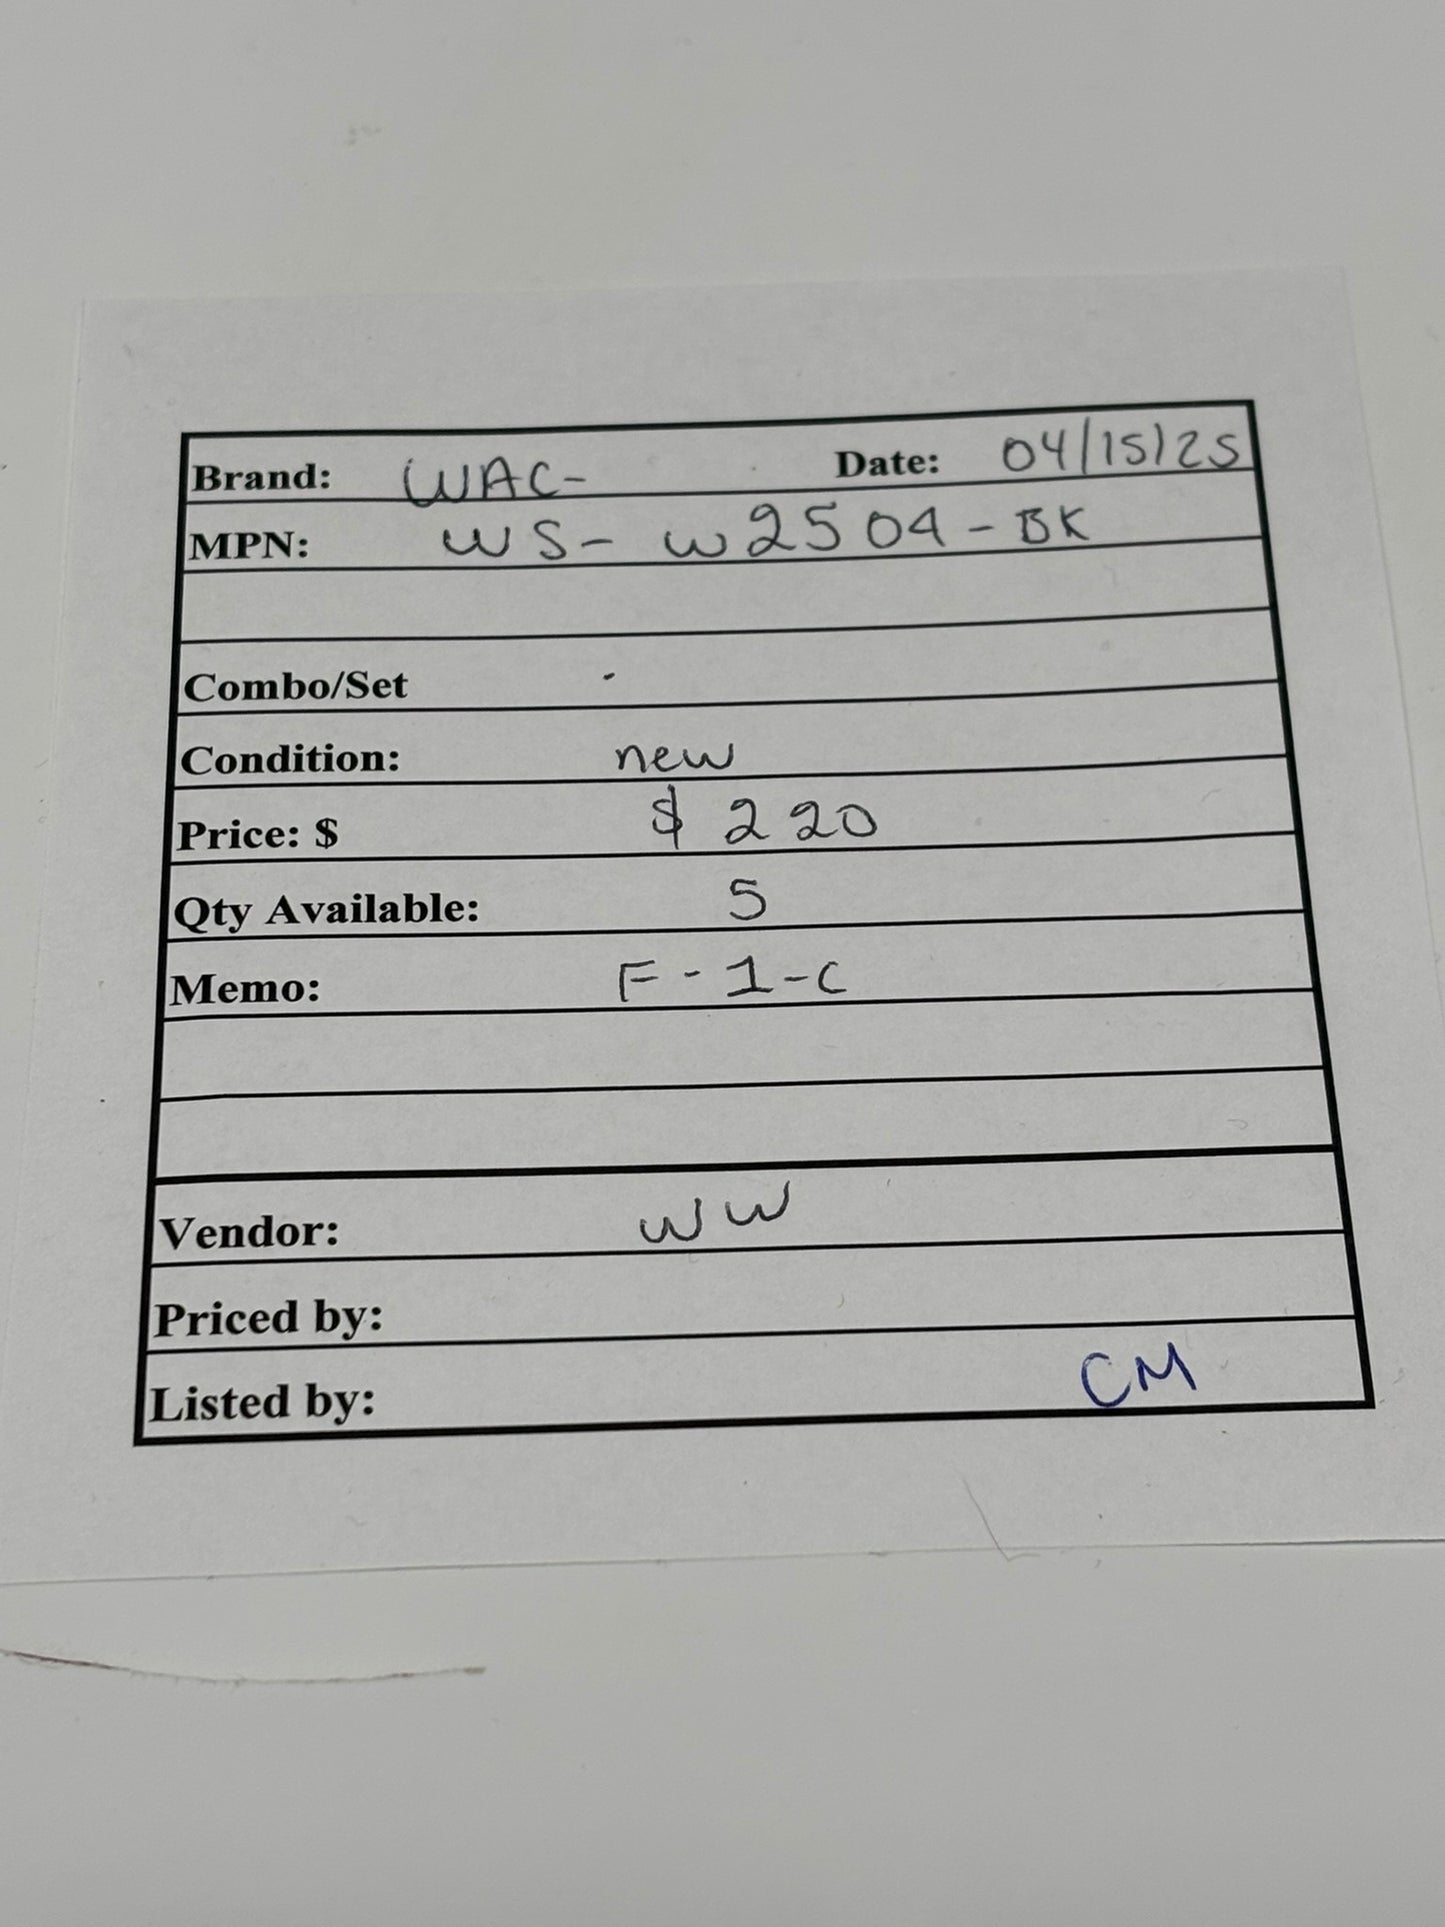 Brand: WAC- Date: 04/15/25
MPN: WS-W2504-BK
Combo/Set
Condition: new
Price: $ $220
Qty Available: 5
Memo: F-1-C
Vendor: WW
Priced by:
Listed by: CM